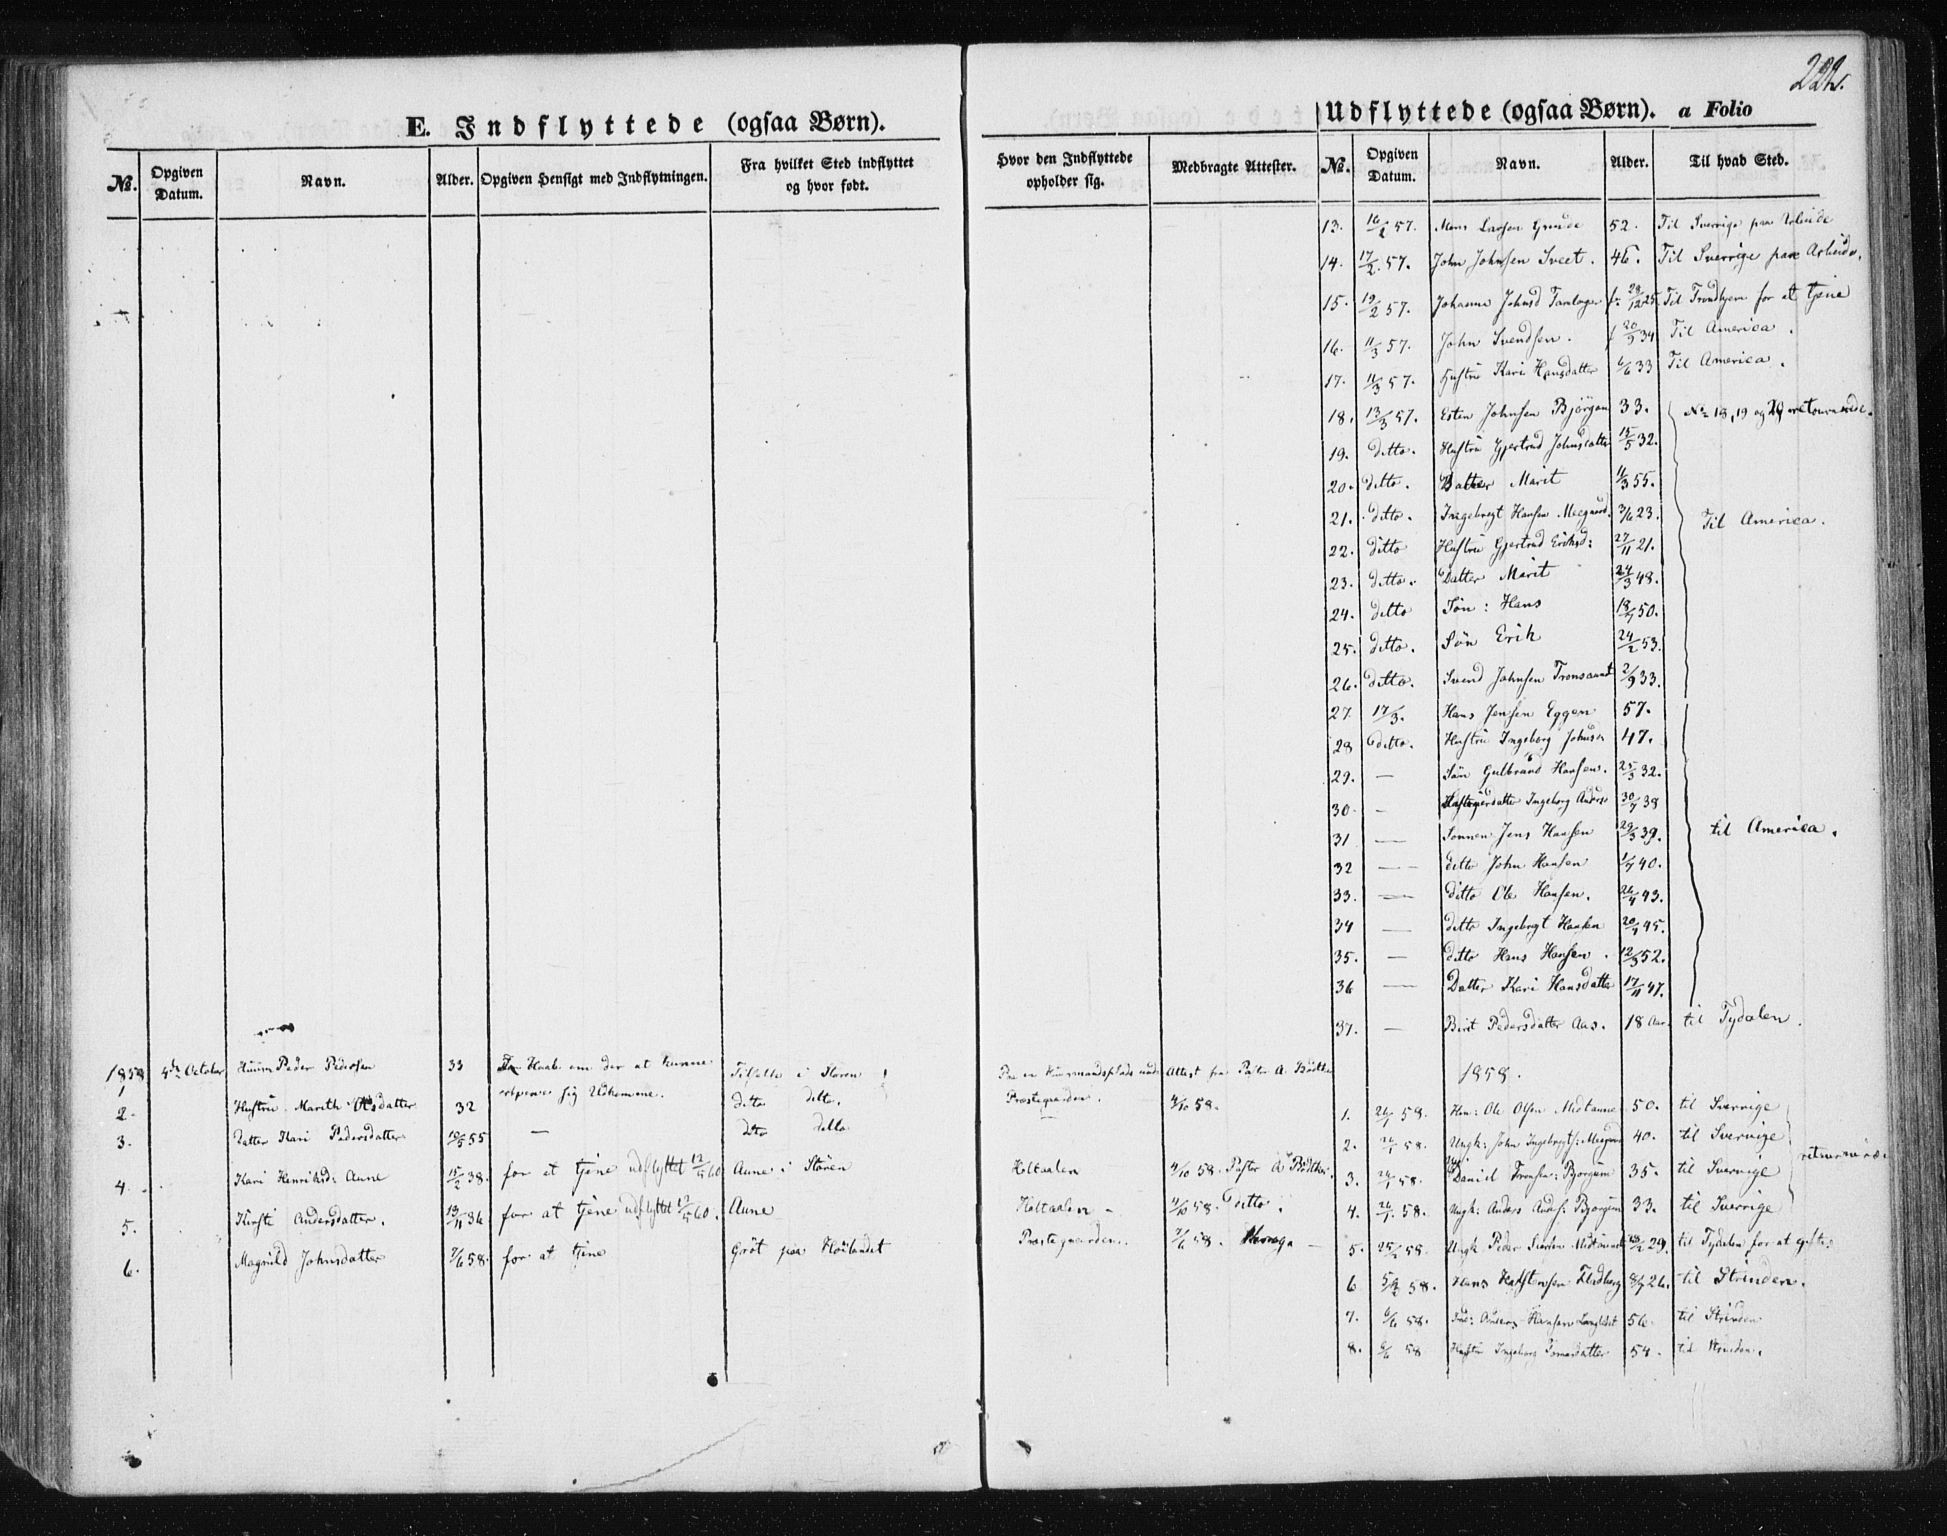 222.
E. Indflyttede (ogsaa Børn).
Udflyttede (ogsaa Børn). a Folio
No. Opgiven Datum. Navn. Alder. Opgiven Hensigt med Indflytningen. Fra hvilket Sted indflyttet og hvor født.
Hvor den Indflyttede opholder sig. Medbragte Attester. No. Opgiven Datum. Navn. Alder. Til hvad Sted.
13. 16/2 57. Mons Larsen 52. Til Sverrige paa Arbeide
14. 17/2 57. John Johnsen Sveet. 46. Til Sverrige paa Arbeide.
15. 19/2 57. Johanna Johnsd f. 28/12 25 Til Trondhjem for at tjene
16. 11/3 57. John Svendsen. f 20/9 34 Til America.
17. 11/3 57. Hustru Kari Hansdatter 6/6 33 Til America.
18. 13/3 57. Esten Johnsen Bjørgen 33. No 18, 19 og 20 retournerede.
19. ditto. Hustru Gjertrud Johnsdatter 15/5 32.
20. ditto. Datter Marit 11/3 55.
21. ditto. Ingebregt Hansen 7/6 23. Til America.
22. ditto Hustru Gjertrud Eriksd: 27/11 21.
23. ditto. Datter Marit 24/3 48.
24. ditto Søn: Hans 18/7 50.
25. ditto. Søn Erik 24/2 53.
26. ditto. Svend Johnsen 2/9 33.
27 17/3. Hans Jensen Eggen 57.
28 ditto. Hustru Ingeborg Johnsd 47.
29. — Søn Gulbrand Hansen. 25/3 32.
30 - Ingeborg Anders 30/7 38
31 — Sønnen Jens Hansen 29/3 39. til America.
32 — ditto John Hansen 1/7 40.
33. — ditto Ole Hansen. 26/4 43.
34 — ditto Ingebregt Hansen 20/7 45.
35. — ditto Hans Hansen. 12/3 52.
36 — Datter Kari Hansdatter 17/11 47.
37. — Berit Pedersdatter Aas. 18 Aar. til Tydalen.
1858 4de October Peder Pedersen 33 Haab om der at kunne Tilfælle i Støren Attest fra Pastor A. Bødtker
1 sig Udkomme.
2. Hustru Mareth Olsdatter 32 ditto ditto. Præstegaarden. 4/10 58.
3. Datter Kari Pedersdatter 10/5 55 — dto ditto
4. Kari Henriksd: Aune 15/2 38. for at tjene udflyttet 12/5 60 Aune i Støren Holtaalen 4/10 58. Pastor A Bødtker.
5. Kirsti Andersdatter. 13/11 36 for at tjene udflyttet 12/5 60. Aune Holtaalen - 4/10 58. ditto.
6. Magnild Johnsdatter 7/6 58. for at tjene Grøt paa Høilandet Præstegaarden. 7/6 58. —
1858.
1. 24/1 58. Ole Olsen Midtaune 50. til Sverrige
2. 24/1 58. Ungk: John Ingebrigts: 40. til Sverrige
3. 24/1 58. Daniel Bjørgum 35. til Sverrige
4. 24/1 58. Ungk: Anders Anders: Bjørgum 33. til Sverrige
5. 25/2 58. Ungk. Peder 29. til Tydalen for at giftes
6 58. Hans Flodberg 8/7 26. til Strinden.
7. 6/6 58. Anders Hansen 56. til Strinden
8. 6/6 58 Hustru Ingeborg 54. til Strinden.